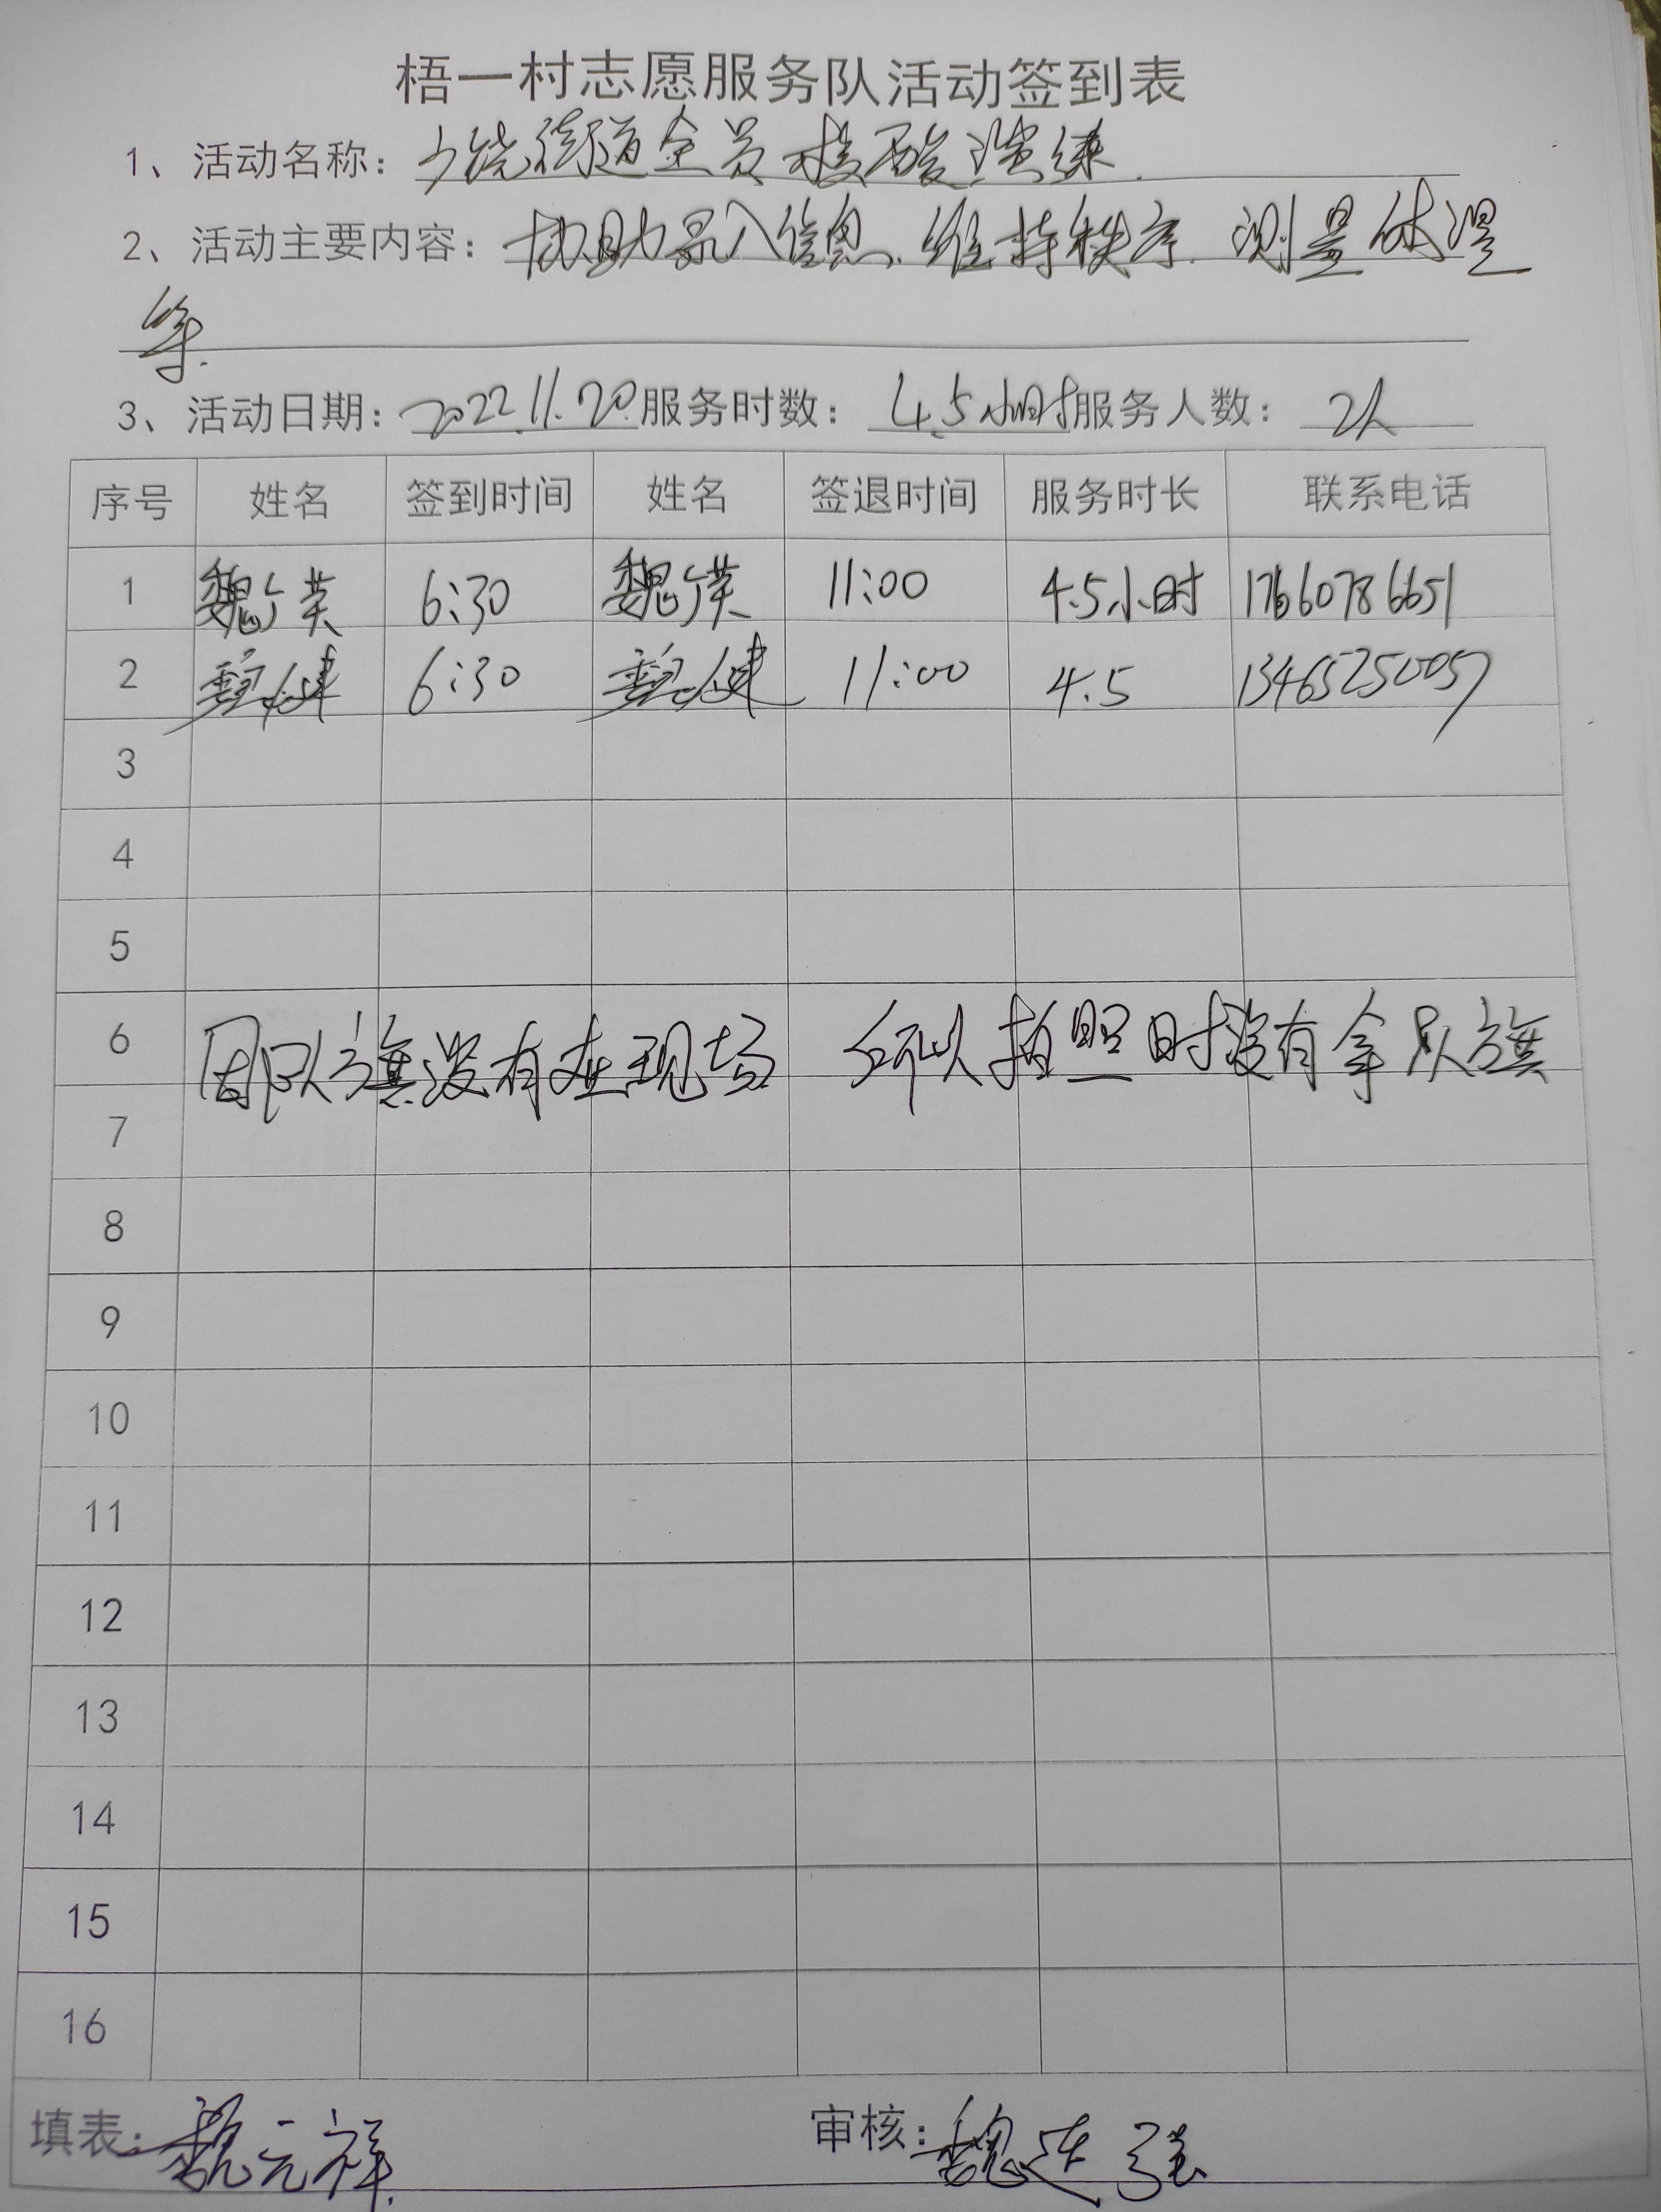 梧一村志愿服务队活动签到表
1、活动名称：街道全员核酸演练.
2、活动主要内容：协助录入信息、维持秩序、测量体温
等.
3、活动日期：2022.11.20.服务时数：4.5小时服务人数：2人
序号 姓名 签到时间 姓名 签退时间 服务时长 联系电话
1 魏广英 6:30 魏广英 11:00 4.5小时 17660786651
2 魏健 6:30 魏健 11:00 4.5 13465250057
3
4
5
6 因队旗没有在现场 所以拍照时没有拿队旗
7
8
9
10
11
12
13
14
15
16
填表：魏元祥. 审核：魏连强